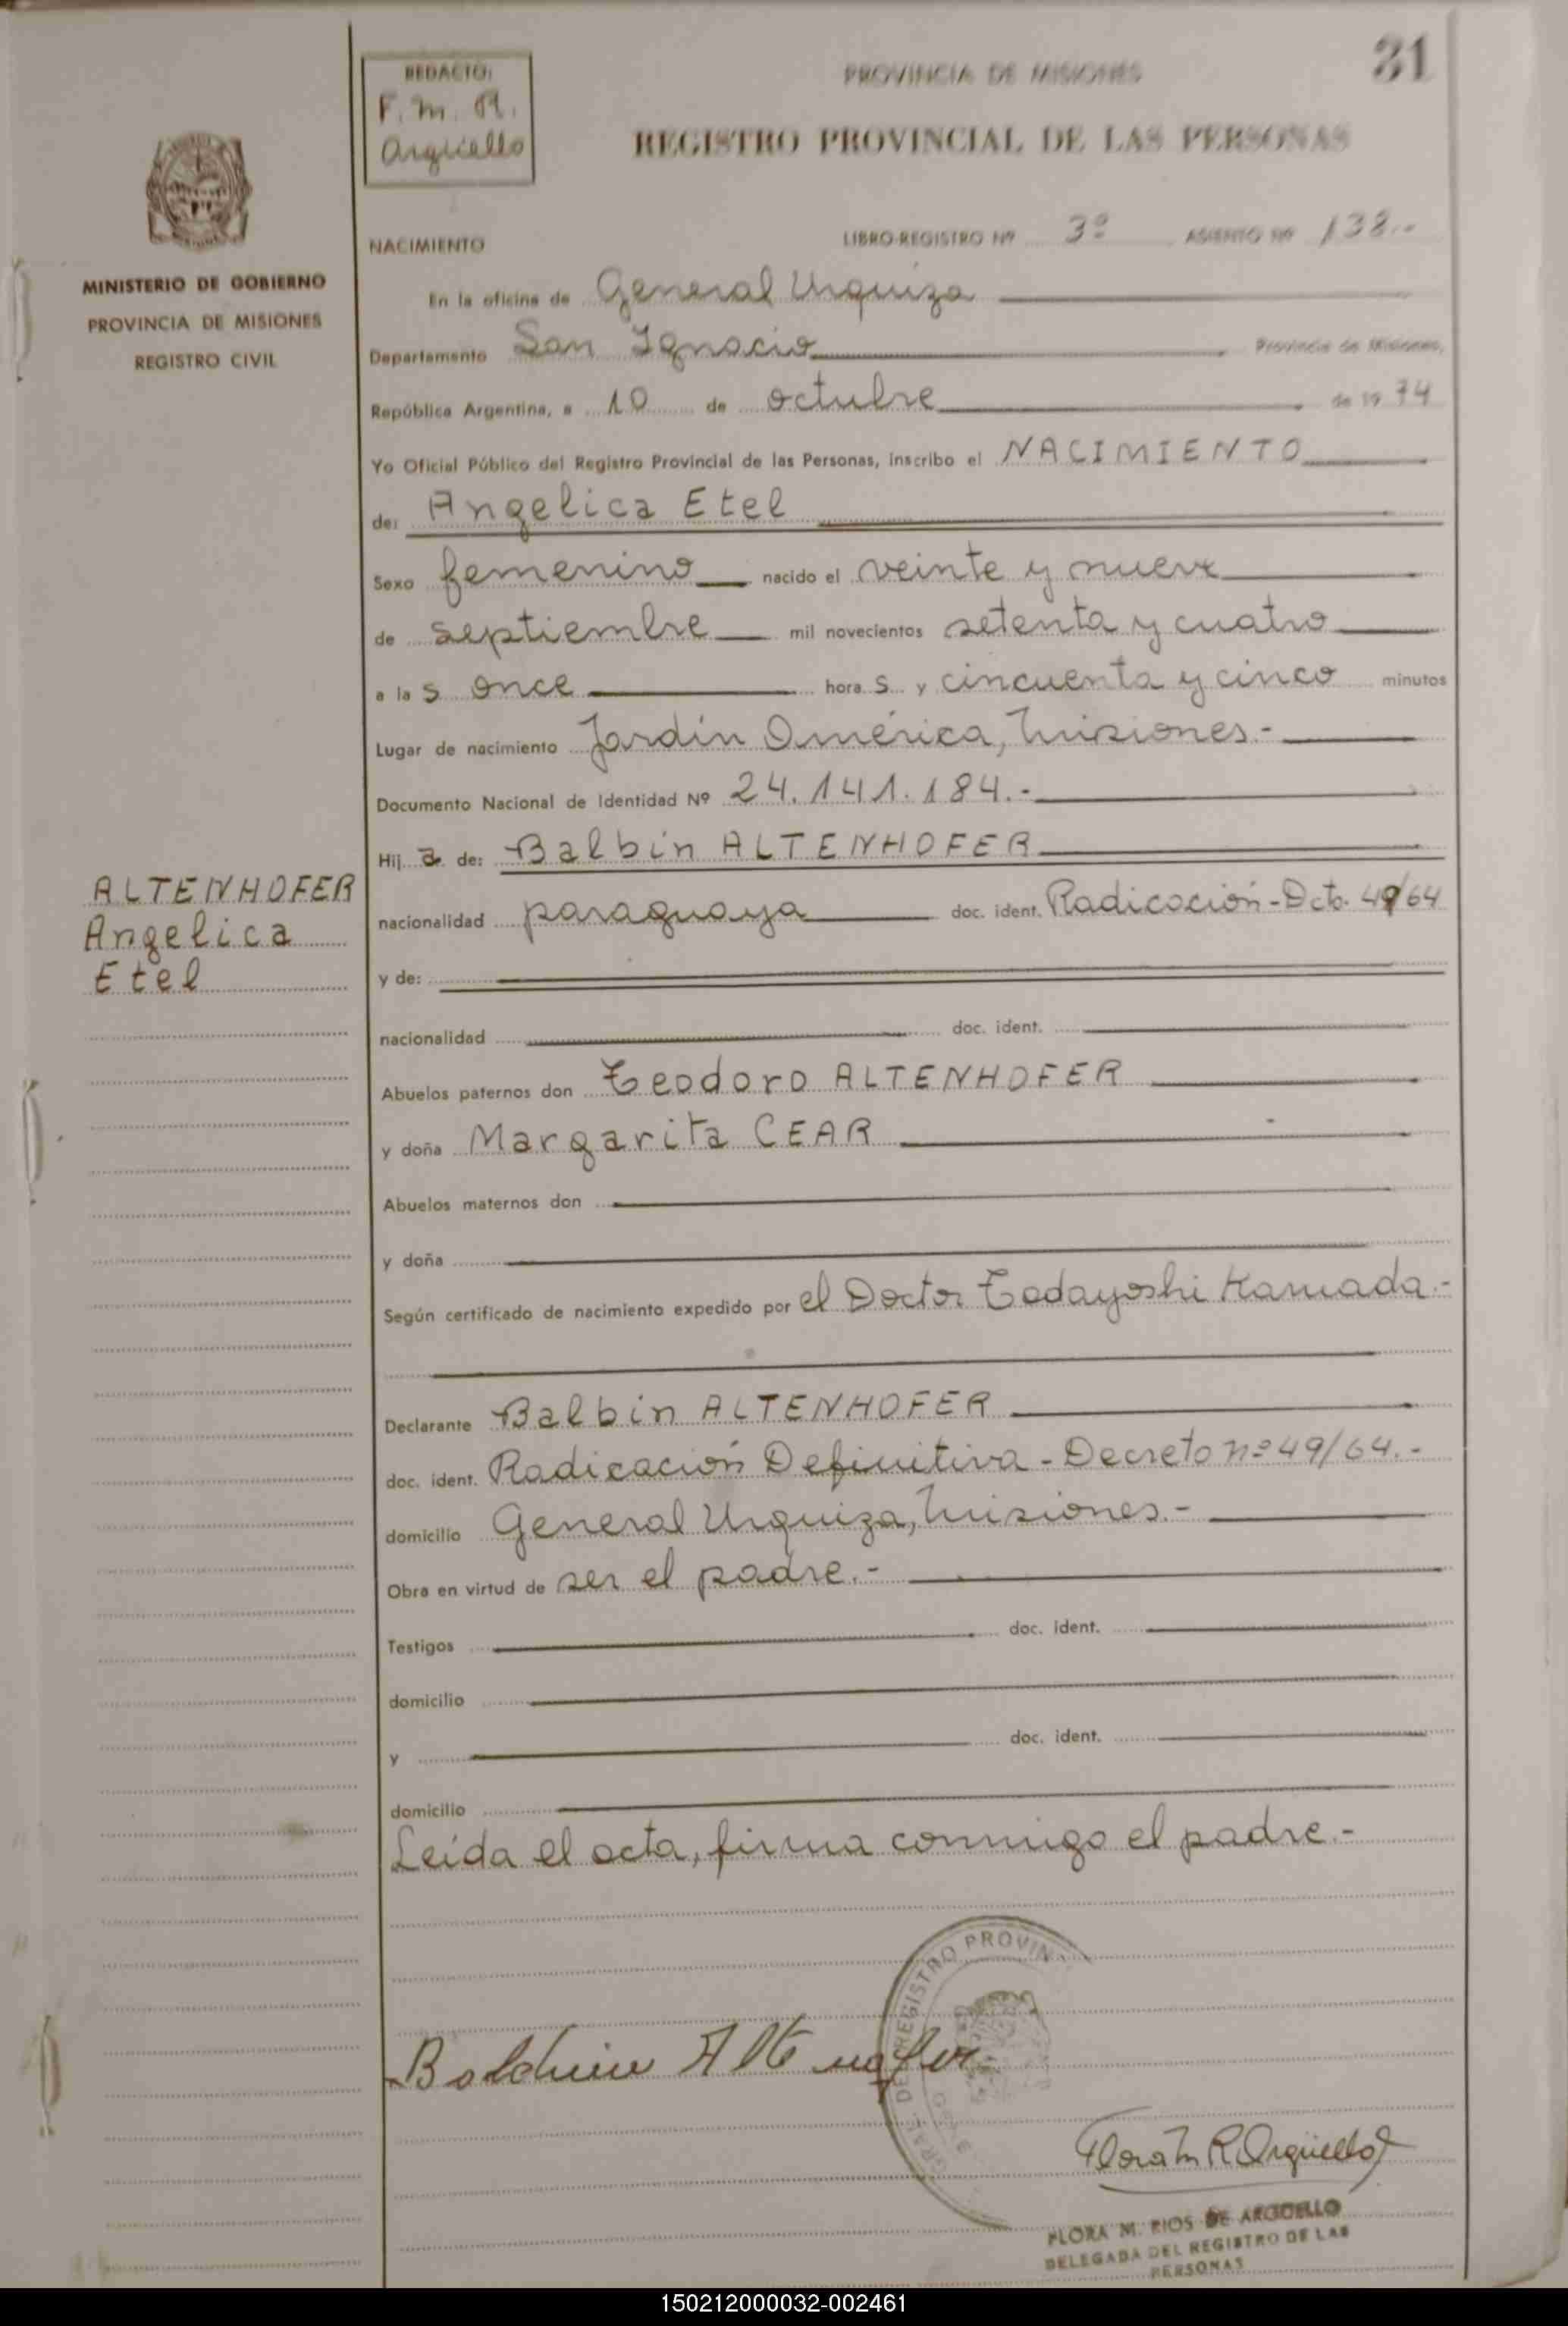 31
REDACTO:
F. M. R.
Argüello
PROVINCIA DE MISIONES
REGISTRO PROVINCIAL DE LAS PERSONAS
MINISTERIO DE GOBIERNO
PROVINCIA DE MISIONES
REGISTRO CIVIL
NACIMIENTO LIBRO-REGISTRO Nº 3º ASIENTO Nº 138.-
En la oficina de General Urquiza
Departamento San Ignacio Provincia de Misiones,
República Argentina, a 10 de octubre de 19 74
Yo Oficial Público del Registro Provincial de las Personas, inscribo el NACIMIENTO
de: Angelica Etel
Sexo femenino nacido el veinte y nueve
de septiembre mil novecientos setenta y cuatro
a las once horas y cincuenta y cinco minutos
Lugar de nacimiento Jardín América, Misiones.-
Documento Nacional de Identidad Nº 24.141.184.-
Hija de: Balbin ALTENHOFER
ALTENHOFER
Angelica
Etel
nacionalidad paraguaya doc. ident. Radicación-Dcto. 49/64
y de:
nacionalidad doc. ident.
Abuelos paternos don Teodoro ALTENHOFER
y doña Margarita CEAR
Abuelos maternos don
y doña
Según certificado de nacimiento expedido por el Doctor Todayoshi Kamada.-
Declarante Balbin ALTENHOFER
doc. ident. Radicación Definitiva - Decreto nº 49/64.-
domicilio General Urquiza, Misiones.-
Obra en virtud de ser el padre.-
Testigos doc. ident.
domicilio
y doc. ident.
domicilio
Leída el acta, firma conmigo el padre.-
DEL REGISTRO PROVIN
Flora M R Argüello
FLORA M. RIOS DE ARGÜELLO
DELEGADA DEL REGISTRO DE LAS
PERSONAS
150212000032-002461